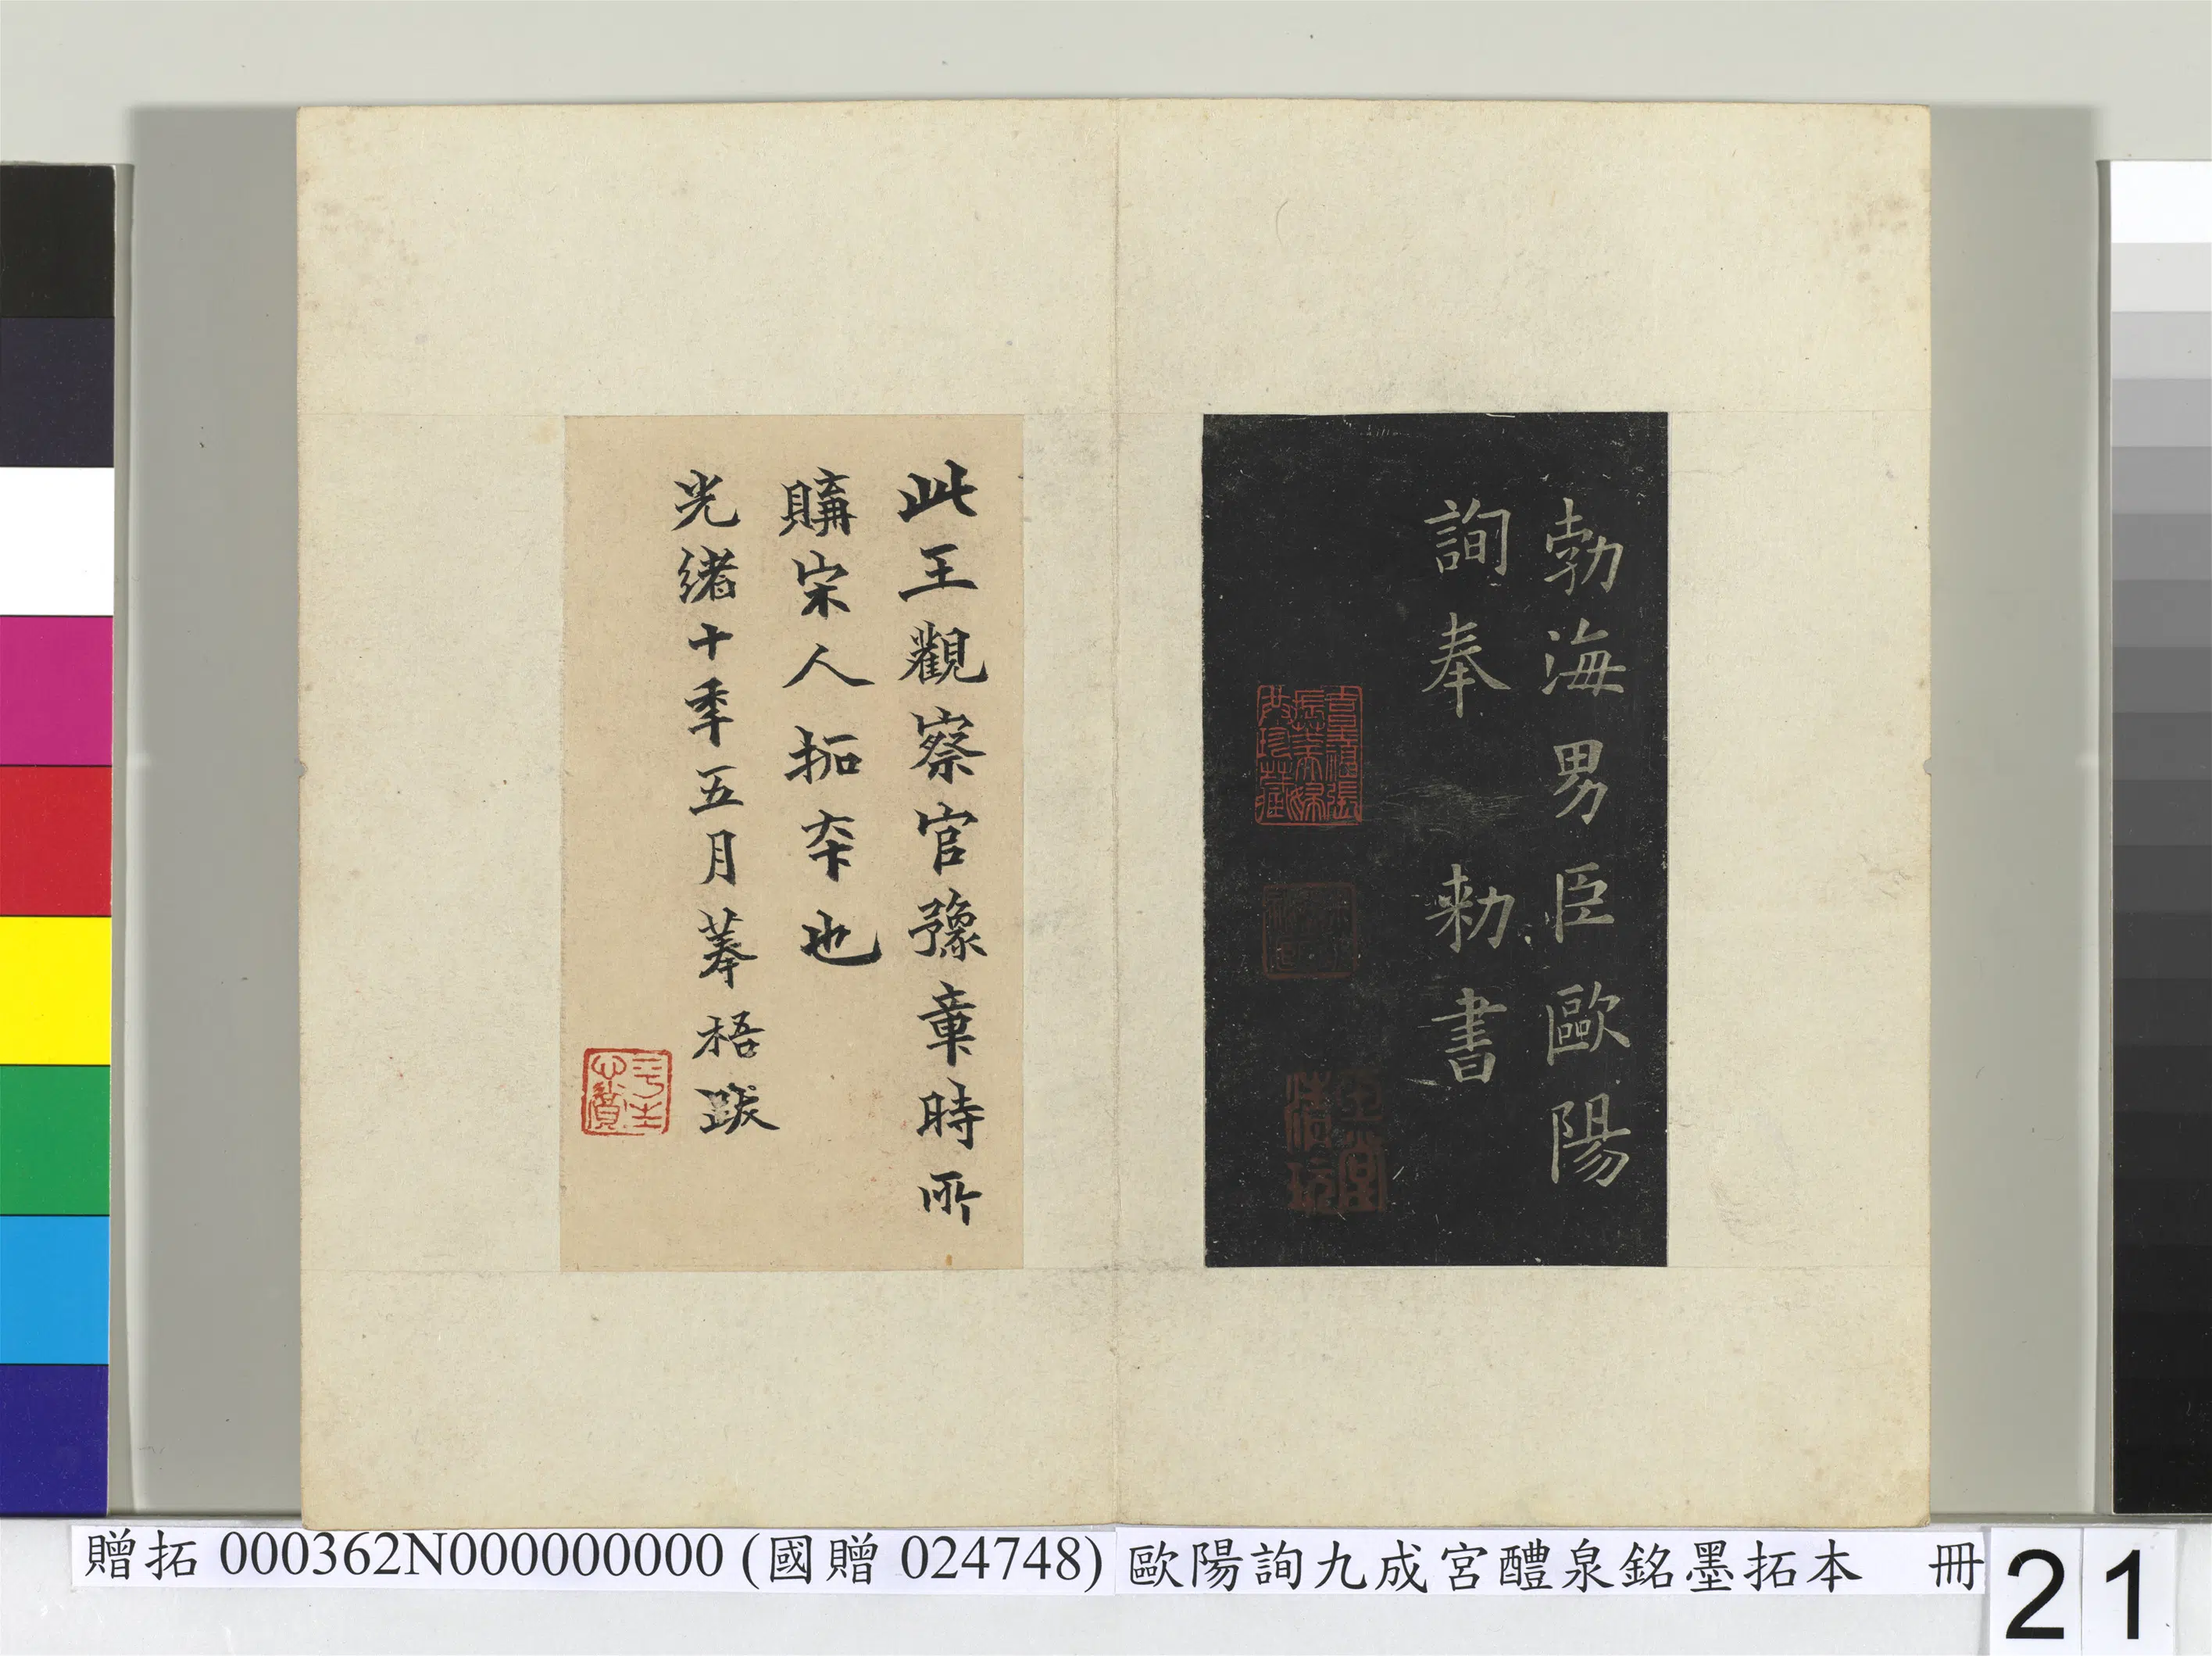 勃海男臣歐陽
詢奉 勑書
此王觀察官豫章時所
購宋人拓夲也
光緒十秊五月摹梧跋
贈拓 000362N000000000 (國贈 024748) 歐陽詢九成宮醴泉銘墨拓本 冊
21